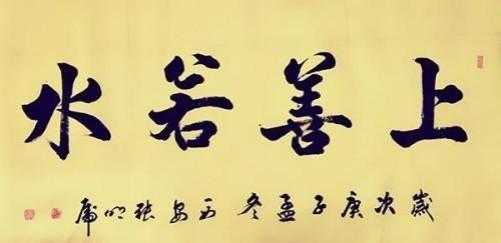 上善若水
歲次庚子孟冬西安張明